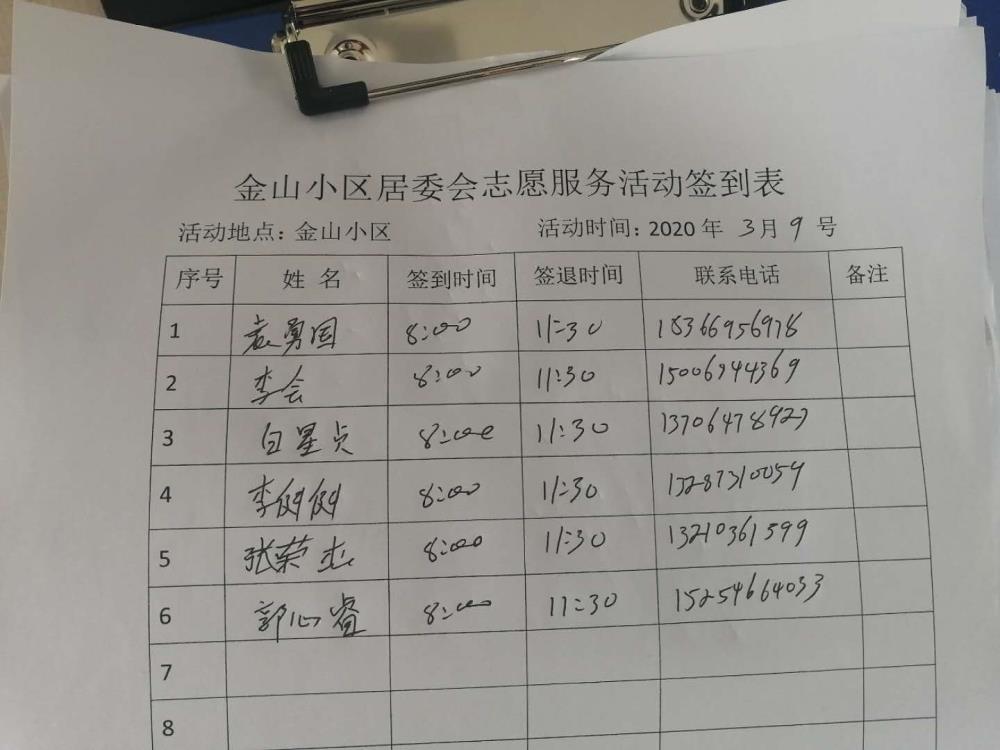 金山小区居委会志愿服务活动签到表
活动地点：金山小区 活动时间：2020年 3月 9 号
序号 姓 名 签到时间 签退时间 联系电话 备注
1 袁勇国 8:00 11:30 18366956978
2 李会 8:00 11:30 15006944369
3 白星贞 8:00 11:30 13706478927
4 李俐俐 8:00 11:30 15287310059
5 张荣 8:00 11:30 13210361599
6 郭心睿 8:00 11:30 15254664033
7
8